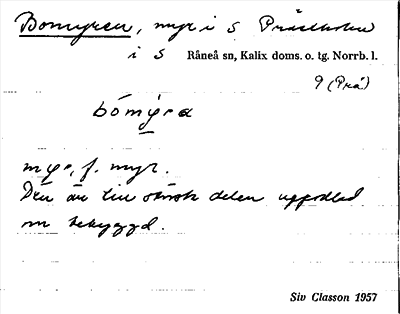 Bomyren, myr i S Prästholm
i S Råneå sn, Kalix doms. o. tg. Norrb. l.
9 (Prä)
bómy̆ra
myr, f. myr.
Den är till största delen uppodlad
en bebyggd.
Siv Classon 1957